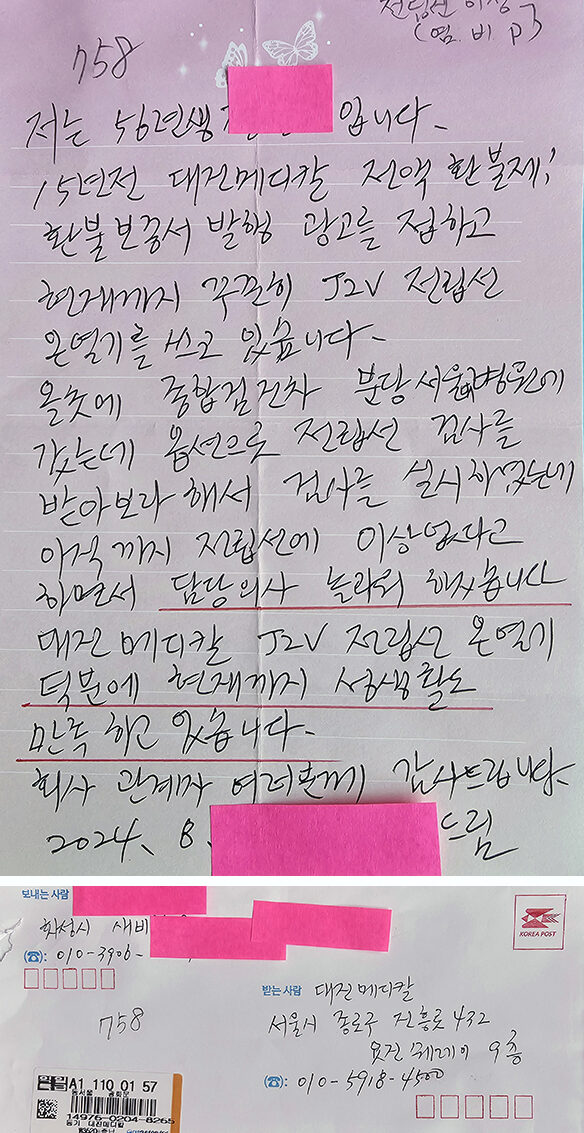 전립선 이상
(염. 비 P)
758
저는 56년생 입니다.
15년전 대진메디칼 전액 환불제!
환불보증서 발행 광고를 접하고
현재까지 꾸준히 J2V 전립선
온열기를 쓰고 있습니다.
올초에 종합검진차 분당서울대병원에
갔는데 옵션으로 전립선 검사를
받아보라 해서 검사를 실시하였는데
아직까지 전립선에 이상없다고
하면서 담당의사 놀라워 하셨습니다
대진메디칼 J2V 전립선 온열기
덕분에 현재까지 성생활도
만족하고 있습니다.
회사 관계자 여러분께 감사드립니다.
2024. 8. 드림
보내는 사람
화성시 새비
(☎): 010-3906-
758
KOREA POST
받는 사람 대진메디칼
서울시 종로구 진흥로 432
요진 9층
(☎): 010-5918-4500
A1 110 01 57
14976-0204-8265
등기 대진메디칼